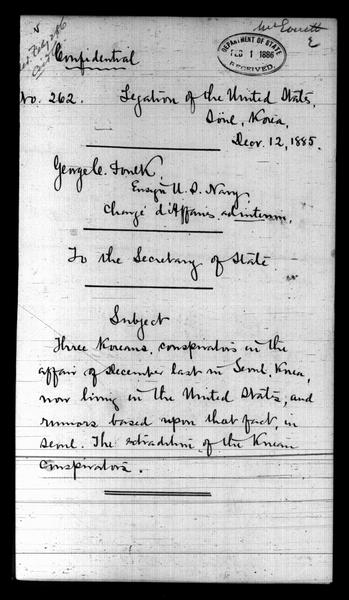 Mr Everett
DEPARTMENT OF STATE
FEB 1 1886
RECEIVED
Confidential
No. 262. Legation of the United States,
Söul, Korea,
Decr. 12, 1885.
George C. Foulk,
Ensign U.S. Navy
Chargé d'Affaires ad interim,
To the Secretary of State
Subject
Three Koreans, conspirators in the
affair of December last in Seoul, Korea,
now living in the United States, and
rumors based upon that fact, in
Seoul. The extradition of the Korean
conspirators.